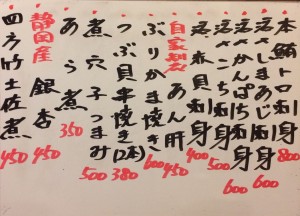 本鮪トロ刺身 800
活しまあじ刺身 600
活かんぱち刺身 600
刺身 500
活赤貝刺 400
自家製 あん肝 450
ぶりかま焼き 600
つぶ貝串焼き(2本) 380
煮穴子つまみ 500
あら煮 350
静岡産 銀杏 450
四方竹土佐煮 450